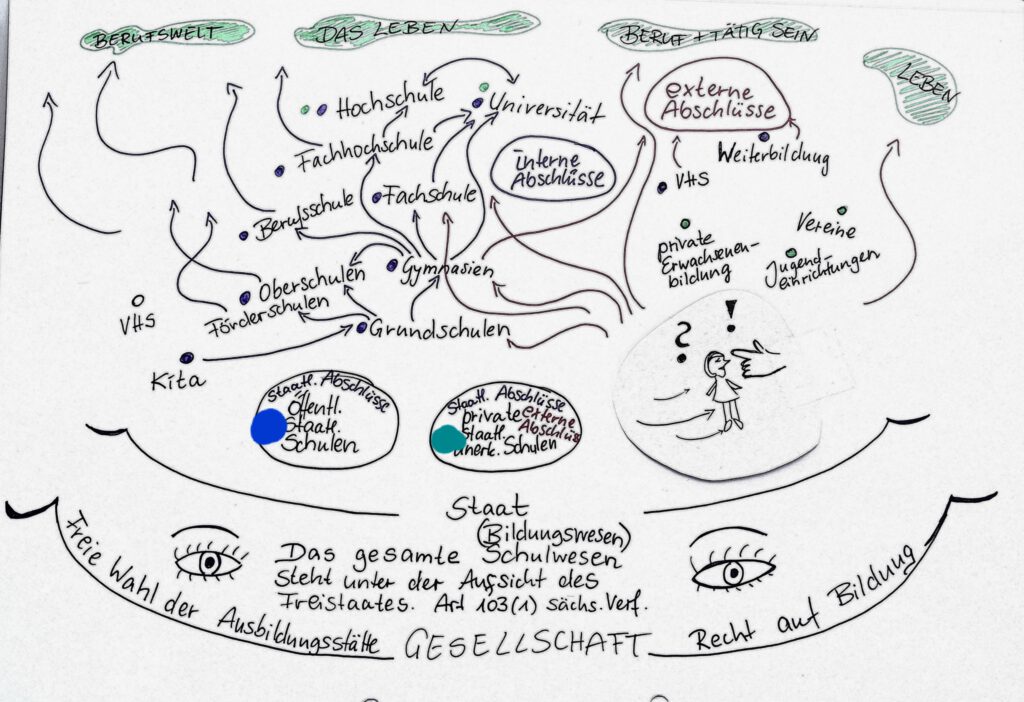 BERUFSWELT
DAS LEBEN
BERUF + TÄTIG SEIN
LEBEN
Hochschule
Universität
externe
Abschlüsse
Fachhochschule
interne
Abschlüsse
Weiterbildung
VHS
Berufsschule
Fachschule
private
Erwachsenen-
bildung
Vereine
Jugend-
einrichtungen
Oberschulen
Gymnasien
Förderschulen
Grundschulen
VHS
Kita
? !
Staatl. Abschlüsse
Öffentl.
Staatl.
Schulen
Staatl. Abschlüsse
private
externe
Abschlüs
Staatl.
anerk. Schulen
Staat
(Bildungswesen)
Das gesamte Schulwesen
steht unter der Aufsicht des
Freistaates. Art 103(1) sächs. Verf.
Freie Wahl der Ausbildungsstätte
GESELLSCHAFT
Recht auf Bildung